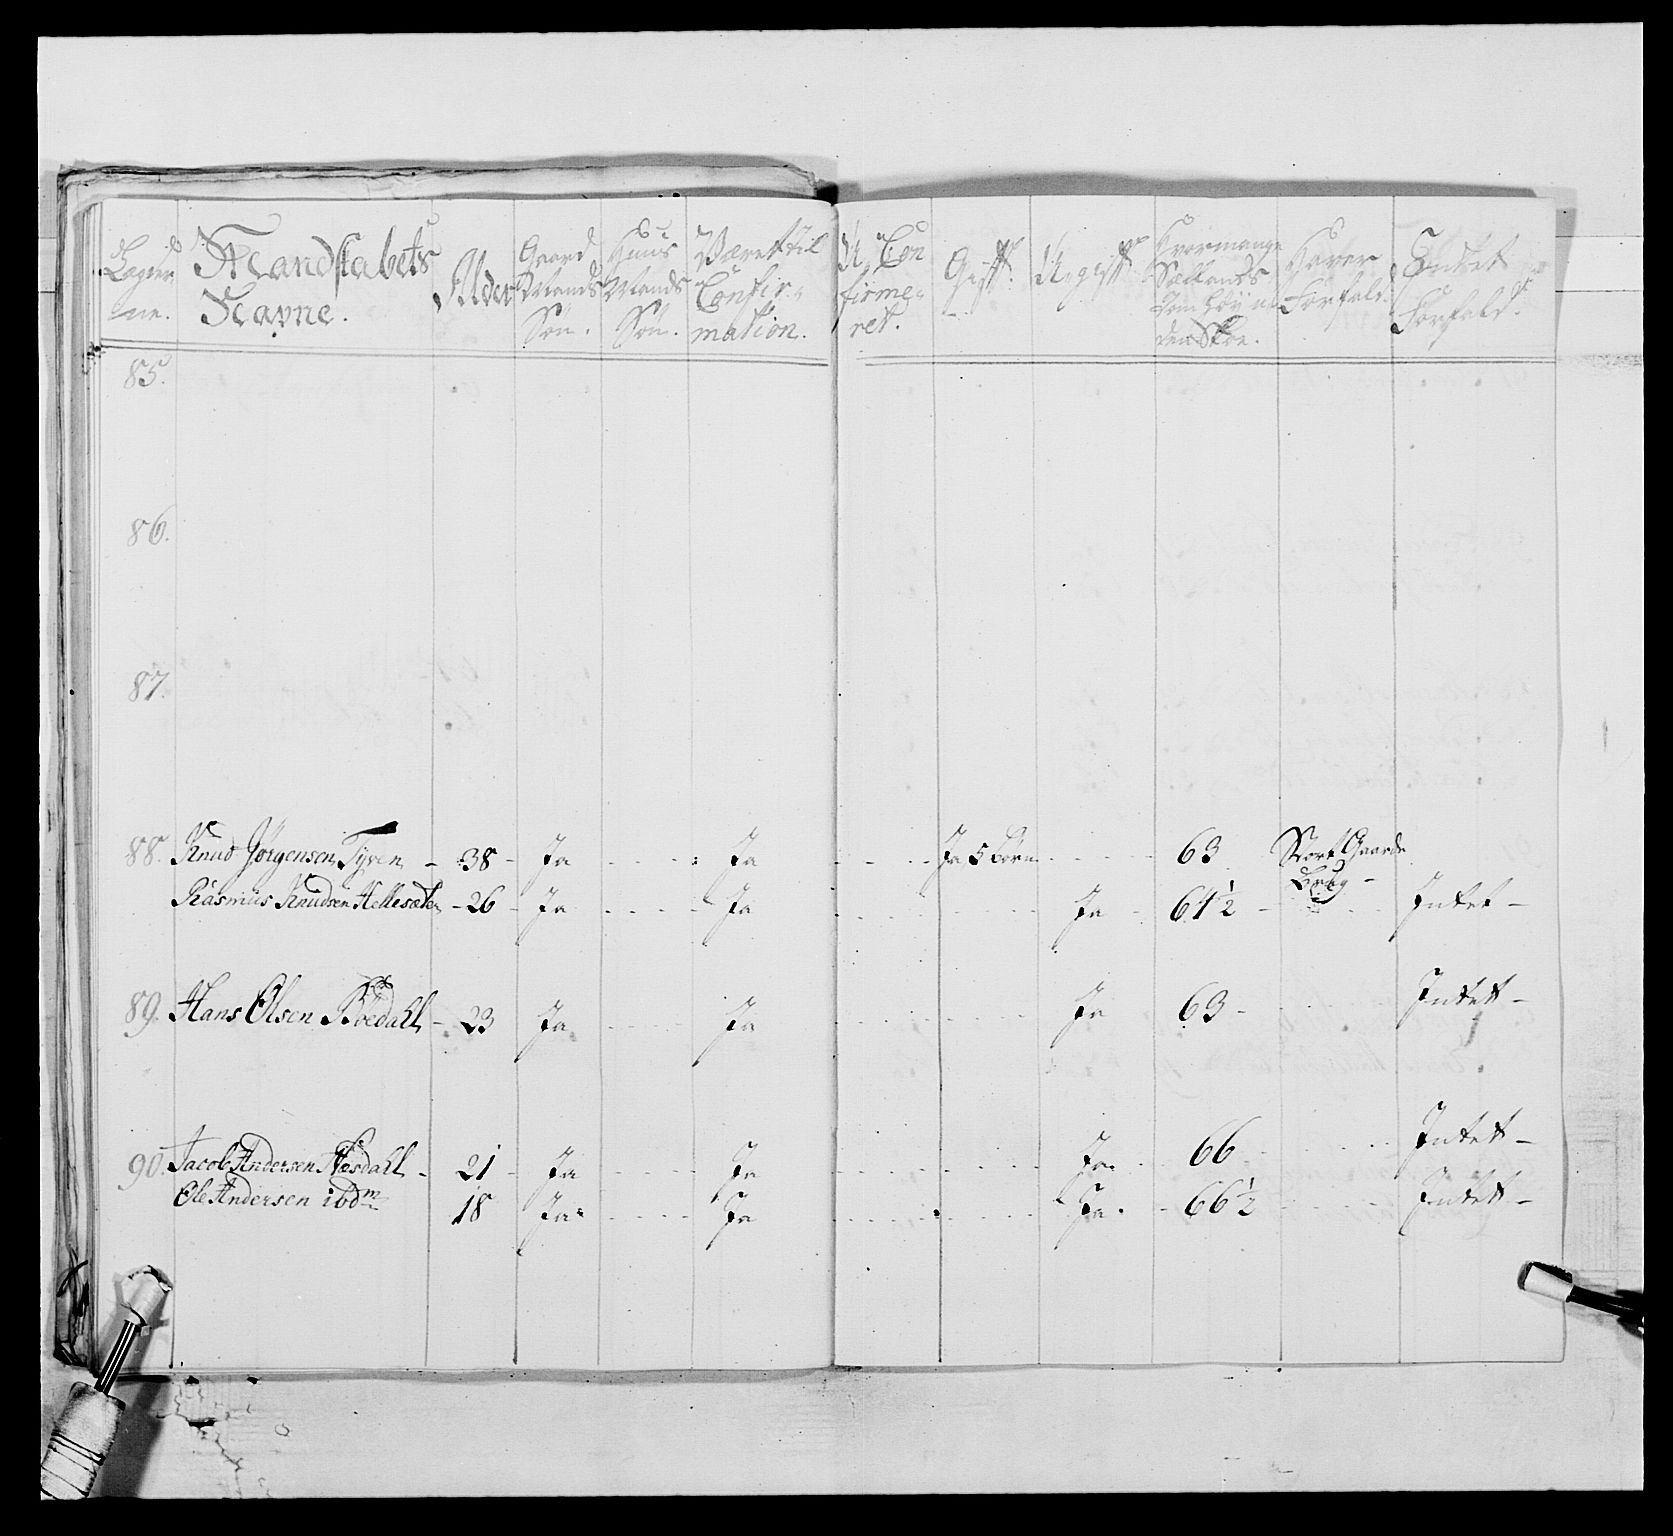 Lægder-
ne. Mandskabets Navne. Alder Gaard Mands Søn. Huus Mands Søn. Været til Confir- mation. U Con firme- ret. Gift. Ugift Hvormange Sællands Tom høy u- den Skoe. Haver Forfald. Intet Forfald.
85.
86.
87.
88. Knud Jørgensen Tyven - 38 - Ja Ja Ja 5 Børn 63 Stort Gaards Brug -
Rasmus Knudsen Hellesæter - 26 - Ja Ja Ja - 64 1/2 - Intet -
89. Hans Olsen Böedahl - 23 Ja Ja Ja 63 - Intet -
90. Jacob Andersen Næsdahl - 21 - Ja Ja Ja 66 Intet -
Ole Andersen ibdm 18 Ja Ja Ja - 66 1/2 Intet -